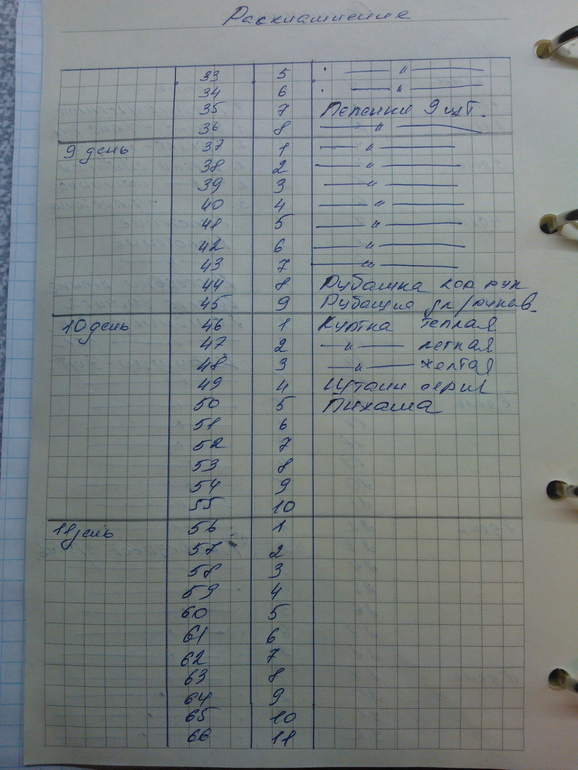 Расхламление
33 5 · — " —
34 6 · — " —
35 7 Пеленки 9 шт.
36 8 — " —
9 день 37 1 — " —
38 2 — " —
39 3 — " —
40 4 — " —
41 5 — " —
42 6 — " —
43 7 — " —
44 8 Рубашка кор рук
45 9 Рубашка дл/рукав.
10 день 46 1 Куртка теплая
47 2 — " — легкая
48 3 — " — желтая
49 4 Штаны серы
50 5 Пижама
51 6
52 7
53 8
54 9
55 10
11 день 56 1
57 2
58 3
59 4
60 5
61 6
62 7
63 8
64 9
65 10
66 11